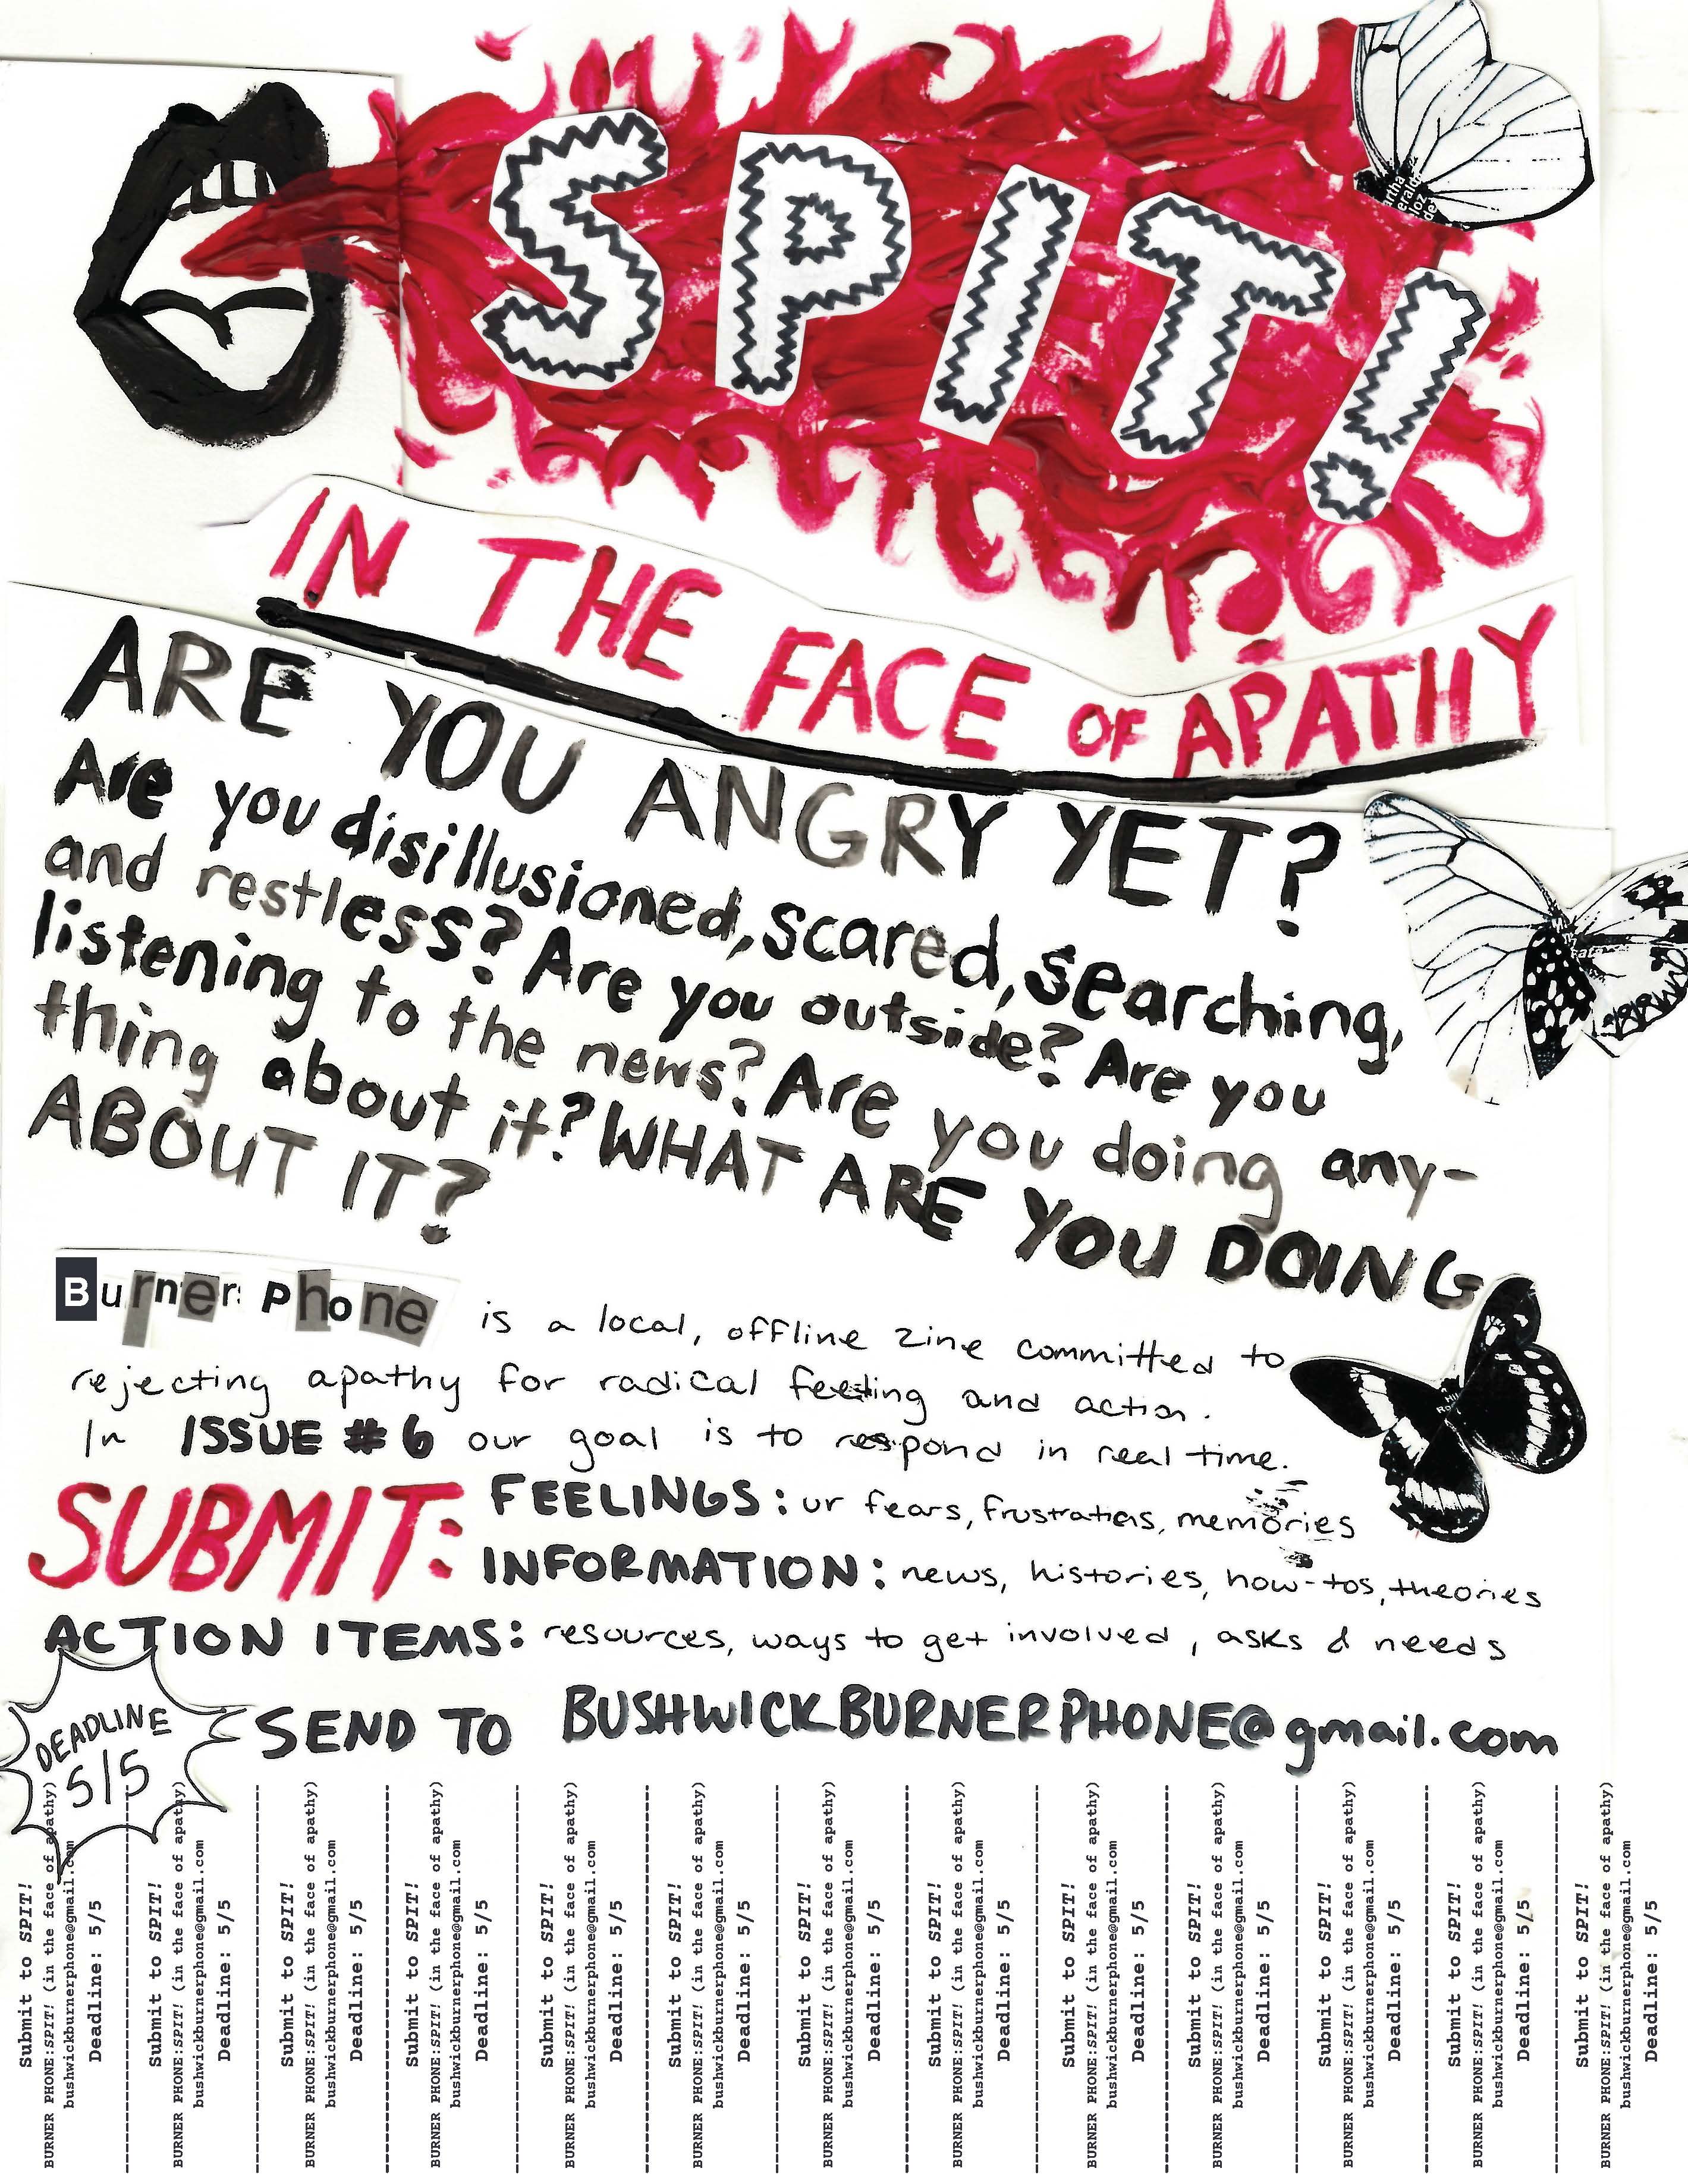 SPIT!
IN THE FACE OF APATHY
ARE YOU ANGRY YET?
Are you disillusioned, scared, searching,
and restless? Are you outside? Are you
listening to the news? Are you doing any-
thing about it? WHAT ARE YOU DOING
ABOUT IT?
Burner Phone is a local, offline zine committed to
rejecting apathy for radical feeling and action.
In ISSUE #6 our goal is to respond in real time.
SUBMIT: FEELINGS: ur fears, frustrations, memories
INFORMATION: news, histories, how-tos, theories
ACTION ITEMS: resources, ways to get involved, asks & needs
DEADLINE
5/5
SEND TO BUSHWICKBURNERPHONE@gmail.com
Submit to SPIT!
BURNER PHONE:SPIT! (in the face of apathy)
bushwickburnerphone@gmail.com
Deadline: 5/5
Submit to SPIT!
BURNER PHONE:SPIT! (in the face of apathy)
bushwickburnerphone@gmail.com
Deadline: 5/5
Submit to SPIT!
BURNER PHONE:SPIT! (in the face of apathy)
bushwickburnerphone@gmail.com
Deadline: 5/5
Submit to SPIT!
BURNER PHONE:SPIT! (in the face of apathy)
bushwickburnerphone@gmail.com
Deadline: 5/5
Submit to SPIT!
BURNER PHONE:SPIT! (in the face of apathy)
bushwickburnerphone@gmail.com
Deadline: 5/5
Submit to SPIT!
BURNER PHONE:SPIT! (in the face of apathy)
bushwickburnerphone@gmail.com
Deadline: 5/5
Submit to SPIT!
BURNER PHONE:SPIT! (in the face of apathy)
bushwickburnerphone@gmail.com
Deadline: 5/5
Submit to SPIT!
BURNER PHONE:SPIT! (in the face of apathy)
bushwickburnerphone@gmail.com
Deadline: 5/5
Submit to SPIT!
BURNER PHONE:SPIT! (in the face of apathy)
bushwickburnerphone@gmail.com
Deadline: 5/5
Submit to SPIT!
BURNER PHONE:SPIT! (in the face of apathy)
bushwickburnerphone@gmail.com
Deadline: 5/5
Submit to SPIT!
BURNER PHONE:SPIT! (in the face of apathy)
bushwickburnerphone@gmail.com
Deadline: 5/5
Submit to SPIT!
BURNER PHONE:SPIT! (in the face of apathy)
bushwickburnerphone@gmail.com
Deadline: 5/5
Submit to SPIT!
BURNER PHONE:SPIT! (in the face of apathy)
bushwickburnerphone@gmail.com
Deadline: 5/5